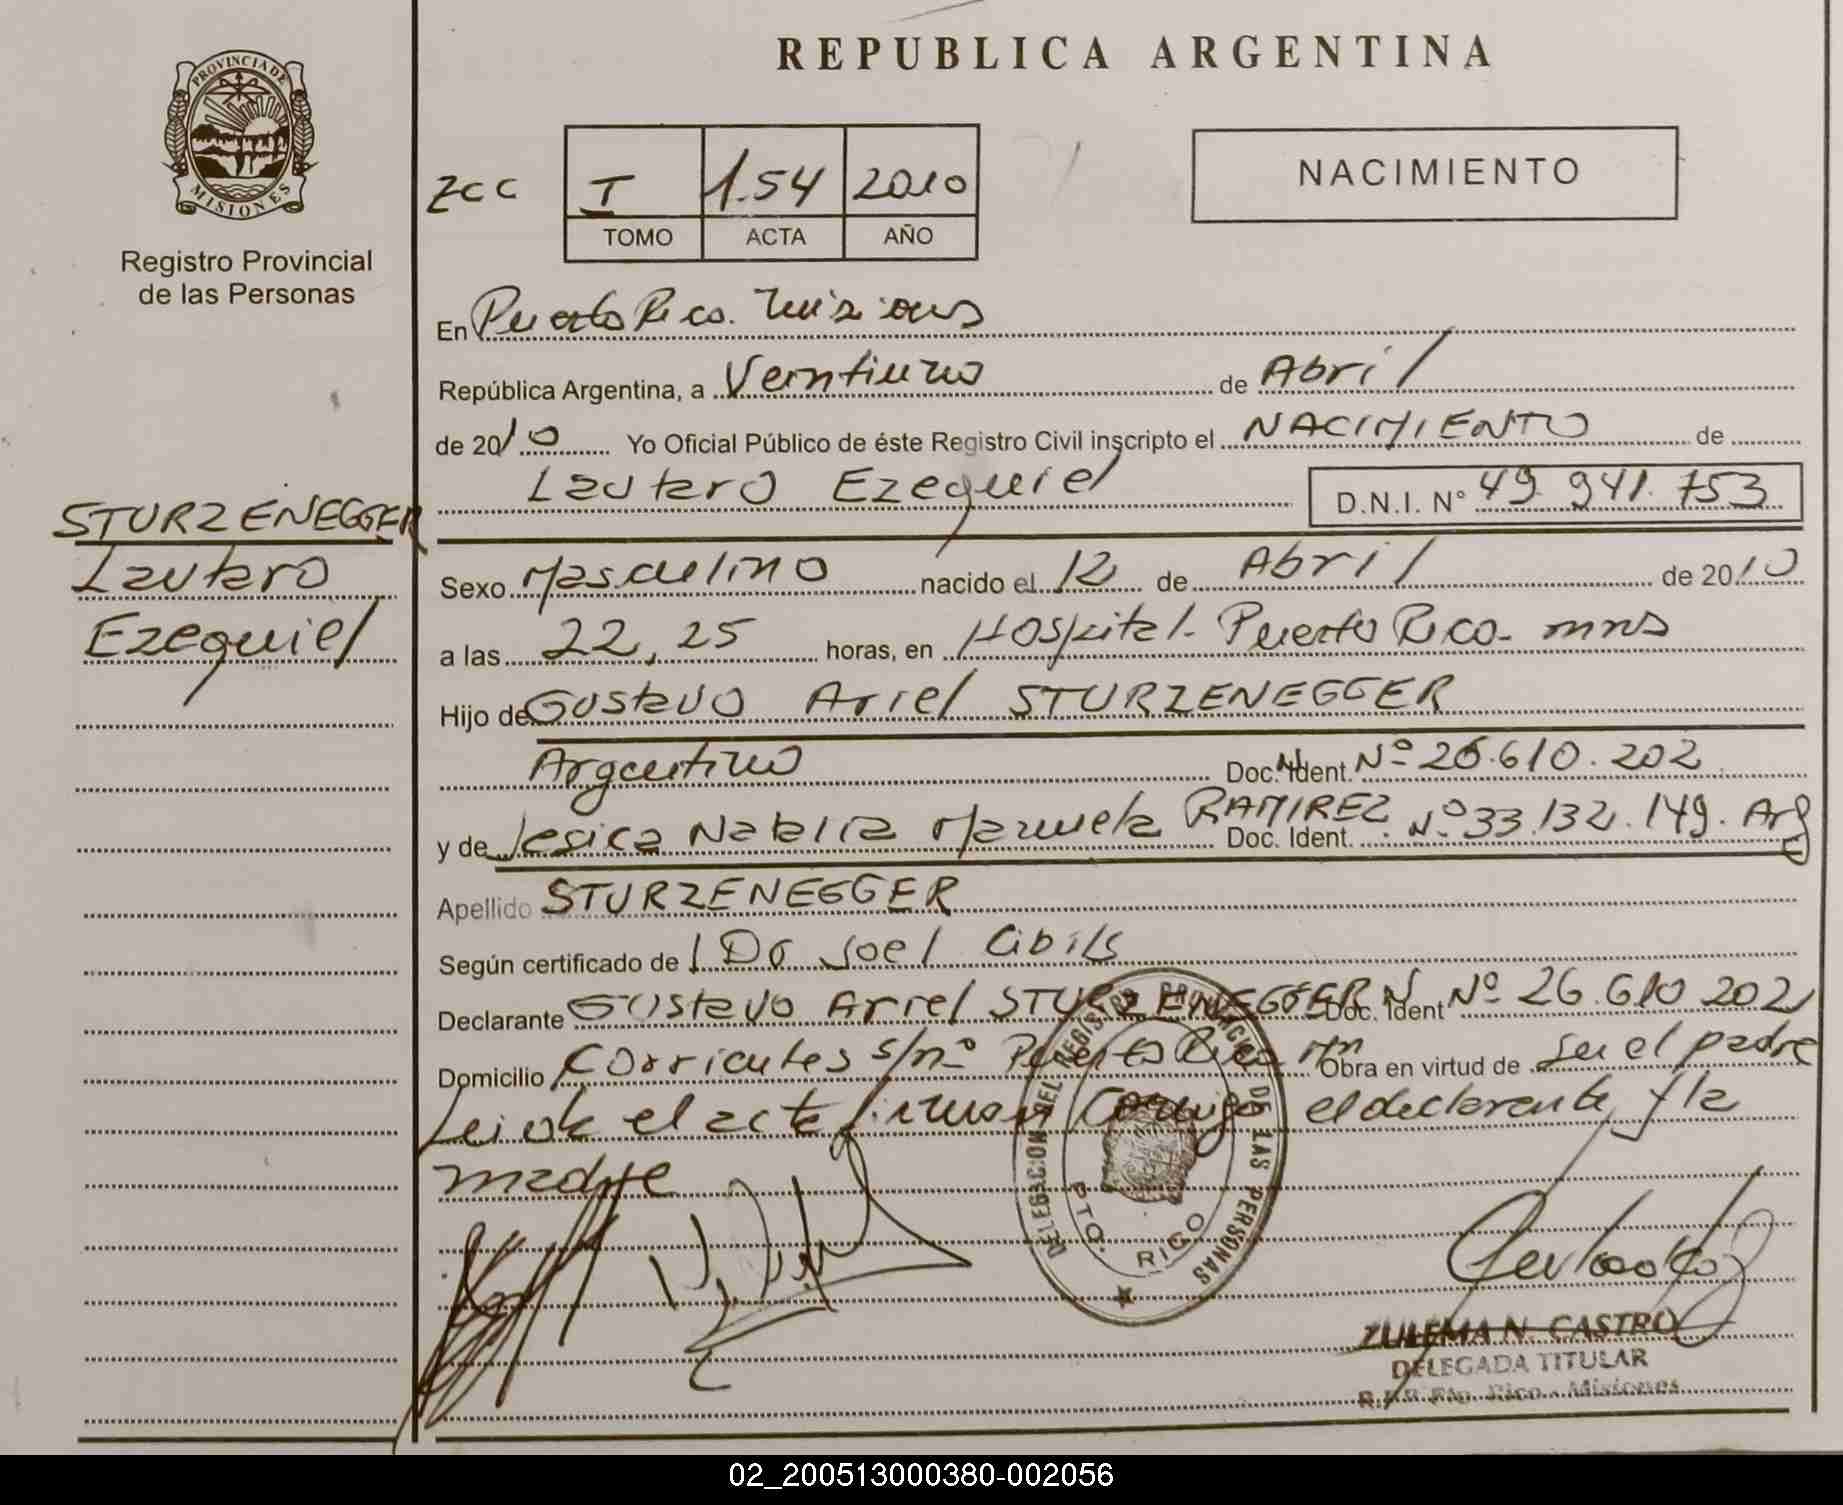 REPUBLICA ARGENTINA
PROVINCIA DE
MISIONES
Registro Provincial
de las Personas
ZCC
I 154 2010
TOMO ACTA AÑO
NACIMIENTO
En Puerto Rico. Misiones
República Argentina, a Veintiuno de Abril
de 2010 Yo Oficial Público de éste Registro Civil inscripto el NACIMIENTO de
Lautaro Ezequiel D.N.I. N° 49.941.753
STURZENEGGER
Lautaro
Ezequiel
Sexo Masculino nacido el 12 de Abril de 2010
a las 22,25 horas, en Hospital. Puerto Rico. mns
Hijo de Gustavo Ariel STURZENEGGER
Argentino Doc. Ident. N° 26.610.202
y de Jesica Natalia Manuela RAMIREZ Doc. Ident. N° 33.132.149. Arg
Apellido STURZENEGGER
Según certificado de Dr Joel Cibils
Declarante Gustavo Ariel STURZENEGGER Doc. Ident N° 26.610.202
Domicilio Corrientes s/n° Puerto Rico Mn Obra en virtud de ser el padre
Leida el acta firman conmigo el declarante y la
madre
DELEGACION DEL REGISTRO PROVINCIAL DE LAS PERSONAS
PTO. RICO
ZULEMA N. CASTRO
DELEGADA TITULAR
R.P.P. Pto. Rico - Misiones
02_200513000380-002056